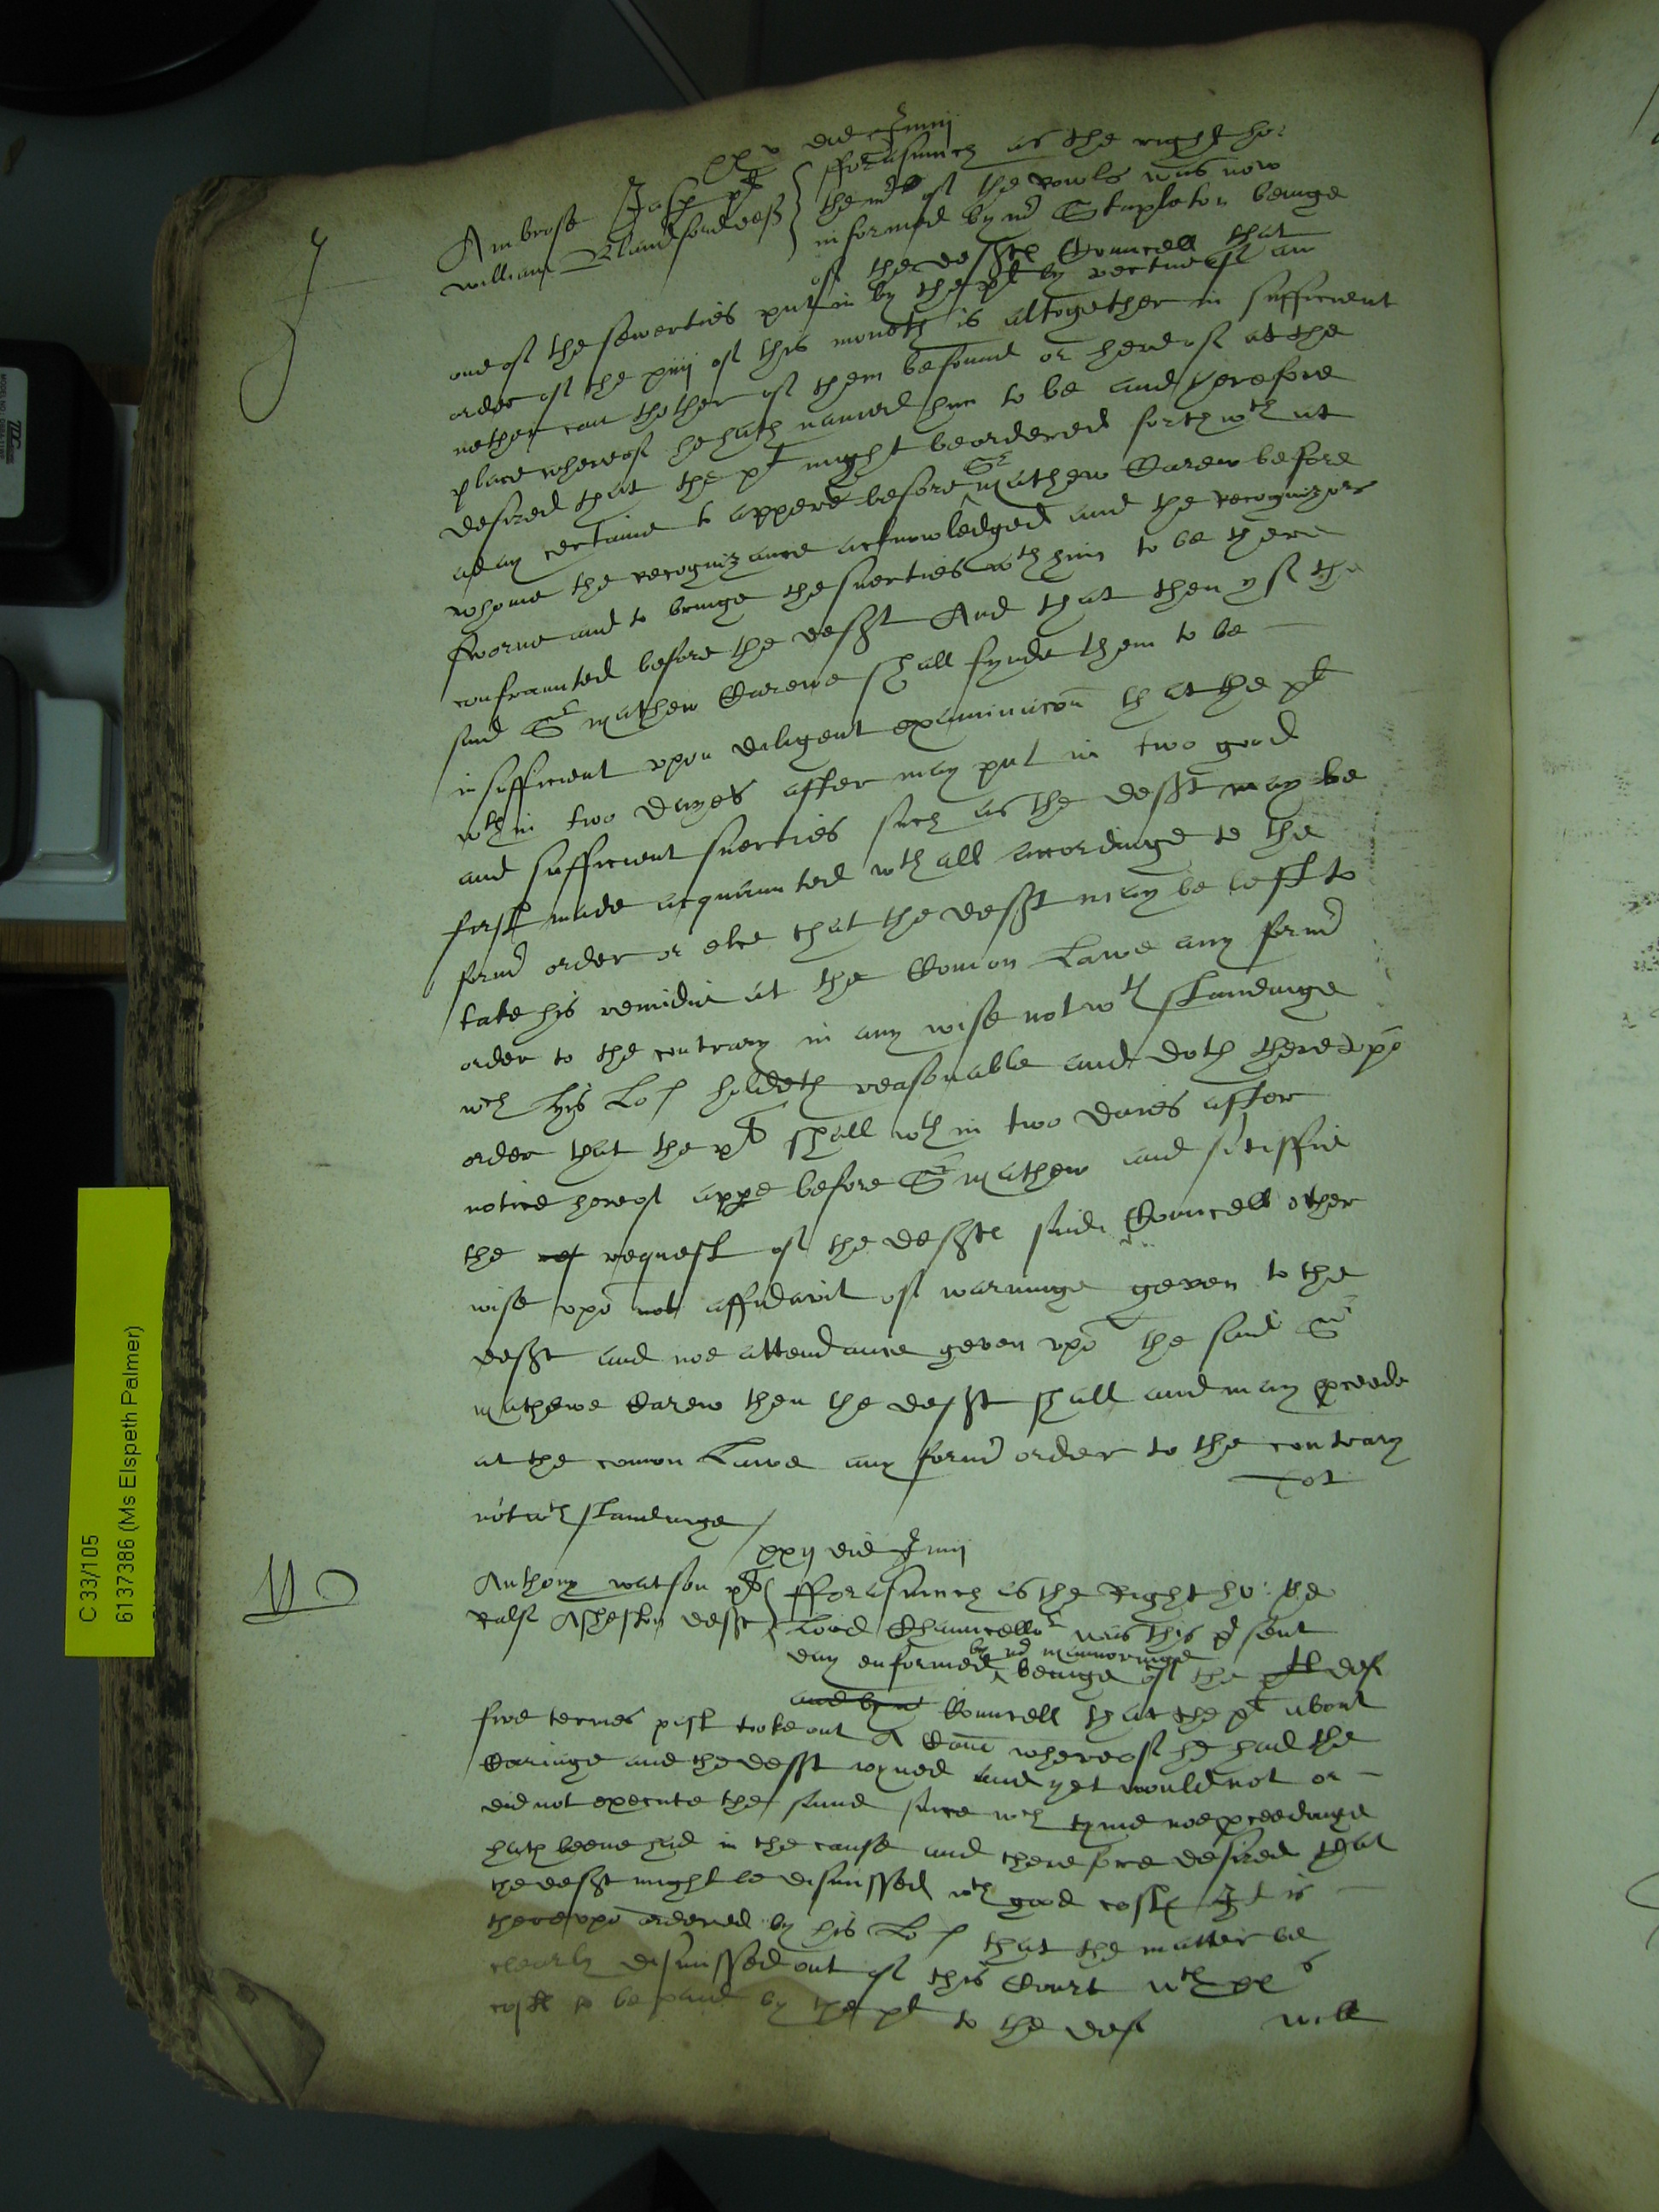 xxv die Junij
J
Ambrose Jasp plt
William Blandford deft
fforasmuch as the right ho:
the mr of the Rowls was now
informed by mr Stapleton beinge
of the deftes Councell that
one of the sewerties put in by the plt by vertue of an
order of the xiiij of this moneth is altogether in sufficient
nether can thother of them be found or herd of at the
place whereof he hath named him to be and therefore
desired that the plt might be ordered forthwth at
a day certaine to appere before Sr Mathew Carew before
whome the recognizance acknowledged and the recognizors
sworne and to bringe the suerties wth him to be there
confraunted before the deft And that then yf the
said Sr Mathew Carewe shall fynde them to be
insufficient upon diligent examinacon that he plt
wthin two dayes after may put in two good
and sufficient suerties such as the deft may be
first made acquaunted wth all accordinge to the
form order or else that the deft may be left to
take his remidie at the Comon Lawe any form
order to the contrary in any wise notwth standinge
wch his Lop holdeth reasonable and doth thereupo
order that the plt shall wth in two daies after
notice hereof appe before Sr Mathew and satisffie
the req request of the deftes said Councell other
wise upo not affidavit of warninge geven to the
deft and noe attendance geven upo the said Sr
Mathewe Carew then the deft shall and may pceede
at the comon Lawe any form order to the contrary
notwth standinge
xxij die Junij
Anthony Watson plt
Ralf Asheton deft
fforasmuch as the Right ho: the
Lord Chauncellor was this psent
day enformed by mr Manneringe beinge of the plt def
and by mr Councell that the plt about
five termes past tooke out A Com whereof he had the
Cariage and the deft ioyned and yet would not or
did not execute the same since wch tyme noe pceedinge
hath beene had in the cause and therefore desired that
the deft might be dismissed wth good costes It is
thereupo ordered by his Lop that the matter be
clearly dismissed out of this Court wth xxs
costes to be paid by the plt to the def
C 33/105
6137386 (Ms Elspeth Palmer)